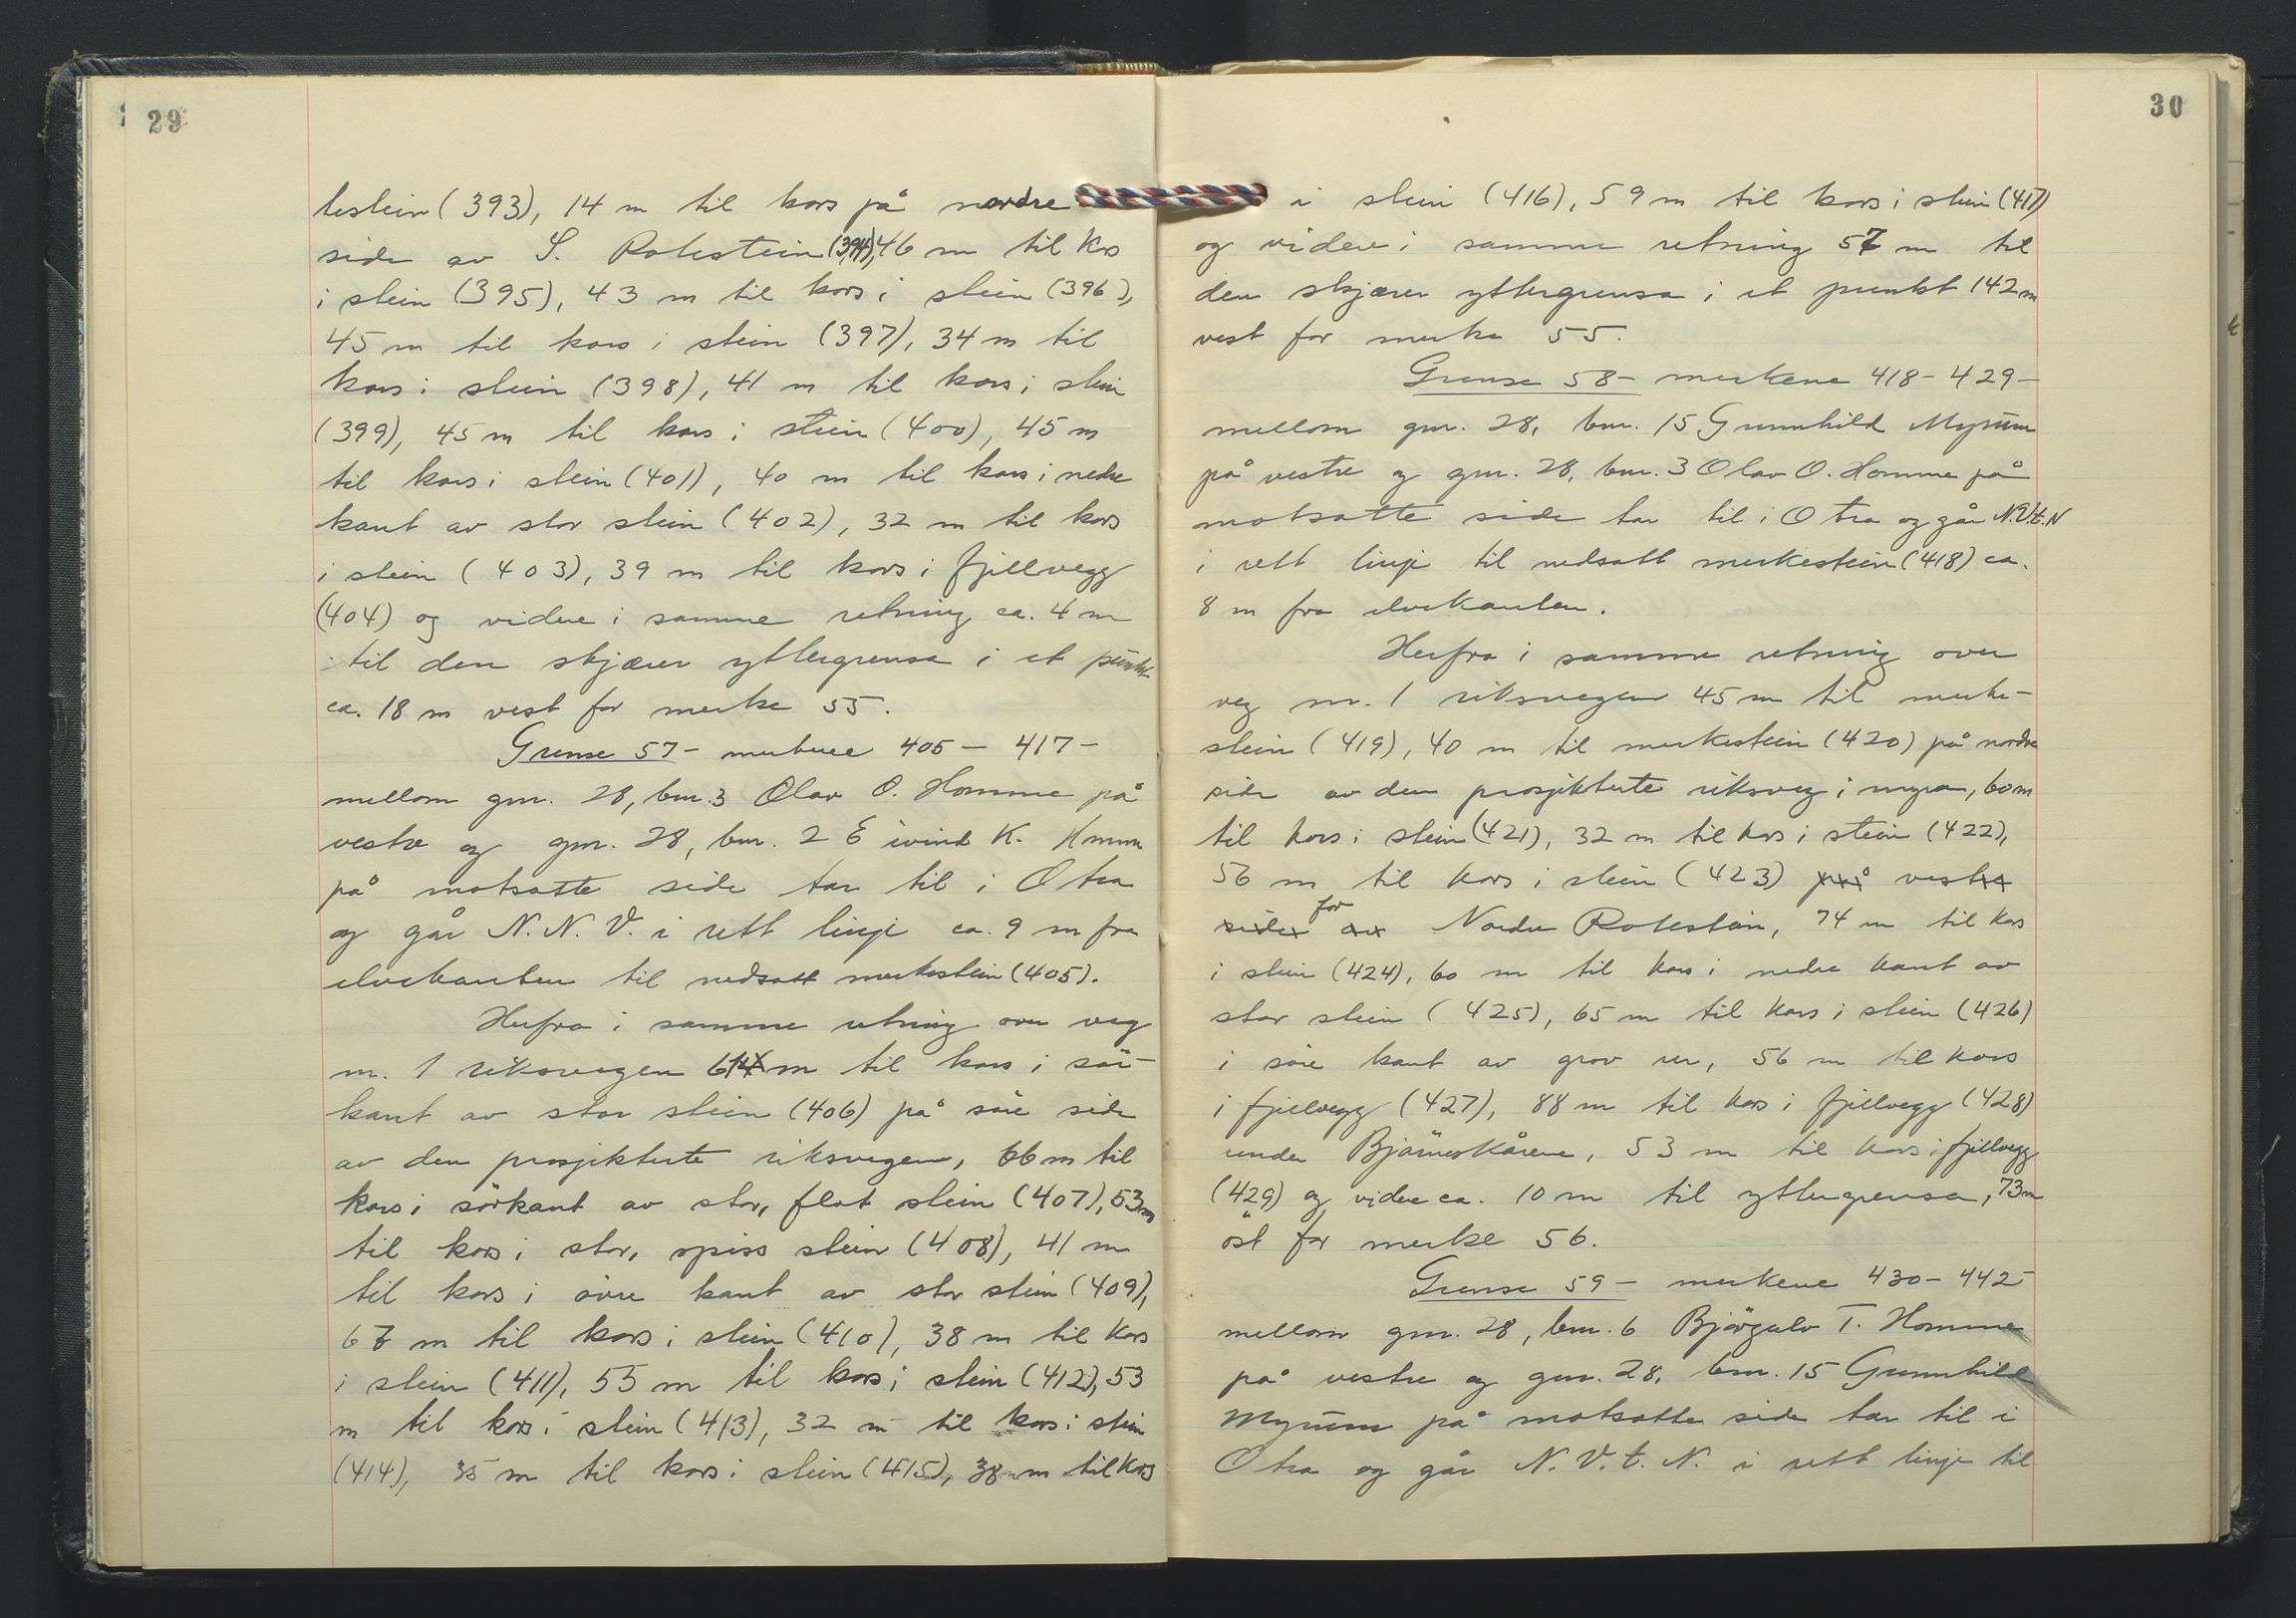 29
testein (393), 14 m til kors på nordre
side av S. Rotestein (394), 46 m til kors
i stein (395), 43 m til kors i stein (396),
45 m til kors i stein (397), 34 m til
kors i stein (398), 41 m til kors i stein
(399), 45 m til kors i stein (400), 45 m
til kors i stein (401), 40 m til kors i nedre
kant av stor stein (402), 32 m til kors
i stein (403), 39 m til kors i fjellvegg
(404) og videre i samme retning ca. 4 m
til den skjærer yttergrensa i et punkt
ca. 18 m vest for merke 55.
Grense 57 - merkene 405 - 417 -
mellom gnr. 28, bnr. 3 Olav O. Homme på
vestre og gnr. 28, bnr. 2 Eivind K. Homme
på motsatte side tar til i Otra
og går N. N. V. i rett linje ca. 9 m fra
elvekanten til nedsatt merkestein (405).
Herfra i samme retning over veg
nr. 1 riksvegen 61 m til kors i sör-
kant av stor stein (406) på söre side
av den prosjekterte riksvegen, 66 m til
kors i sörkant av stor, flat stein (407), 53 m
til kors i stor, spiss stein (408), 41 m
til kors i övre kant av stor stein (409),
67 m til kors i stein (410), 38 m til kors
i stein (411), 55 m til kors i stein (412), 53
m til kors i stein (413), 32 m til kors i stein
(414), 35 m til kors i stein (415), 38 m til kors
30
i stein (416), 59 m til kors i stein (417)
og videre i samme retning 57 m til
den skjærer yttergrensa i et punkt 142 m
vest for merke 55.
Grense 58 - merkene 418 - 429 -
mellom gnr. 28, bnr. 15 Gunnhild Myrum
på vestre og gnr. 28, bnr. 3 Olav O. Homme på
motsatte side tar til i Otra og går N.V.t.N
i rett linje til nedsatt merkestein (418) ca.
8 m fra elvekanten.
Herfra i samme retning over
veg nr. 1 riksvegen 45 m til merke-
stein (419), 40 m til merkestein (420) på nordre
side av den prosjekterte riksveg i myra, 60 m
til kors i stein (421), 32 m til kors i stein (422),
56 m til kors i stein (423) på vestre
side av for Nordre Rotestein, 74 m til kors
i stein (424), 60 m til kors i nedre kant av
stor stein (425), 65 m til kors i stein (426)
i söre kant av grov ur, 56 m til kors
i fjellvegg (427), 88 m til kors i fjellvegg (428)
under Bjönneskårene, 53 m til kors i fjellvegg
(429) og videre ca. 10 m til yttergrensa, 73 m
öst for merke 56.
Grense 59 - merkene 430 - 442 -
mellom gnr. 28, bnr. 6 Björgulv T. Homme
på vestre og gnr. 28, bnr. 15 Gunnhild
Myrum på motsatte side tar til i
Otra og går N. V. t. N. i rett linje til